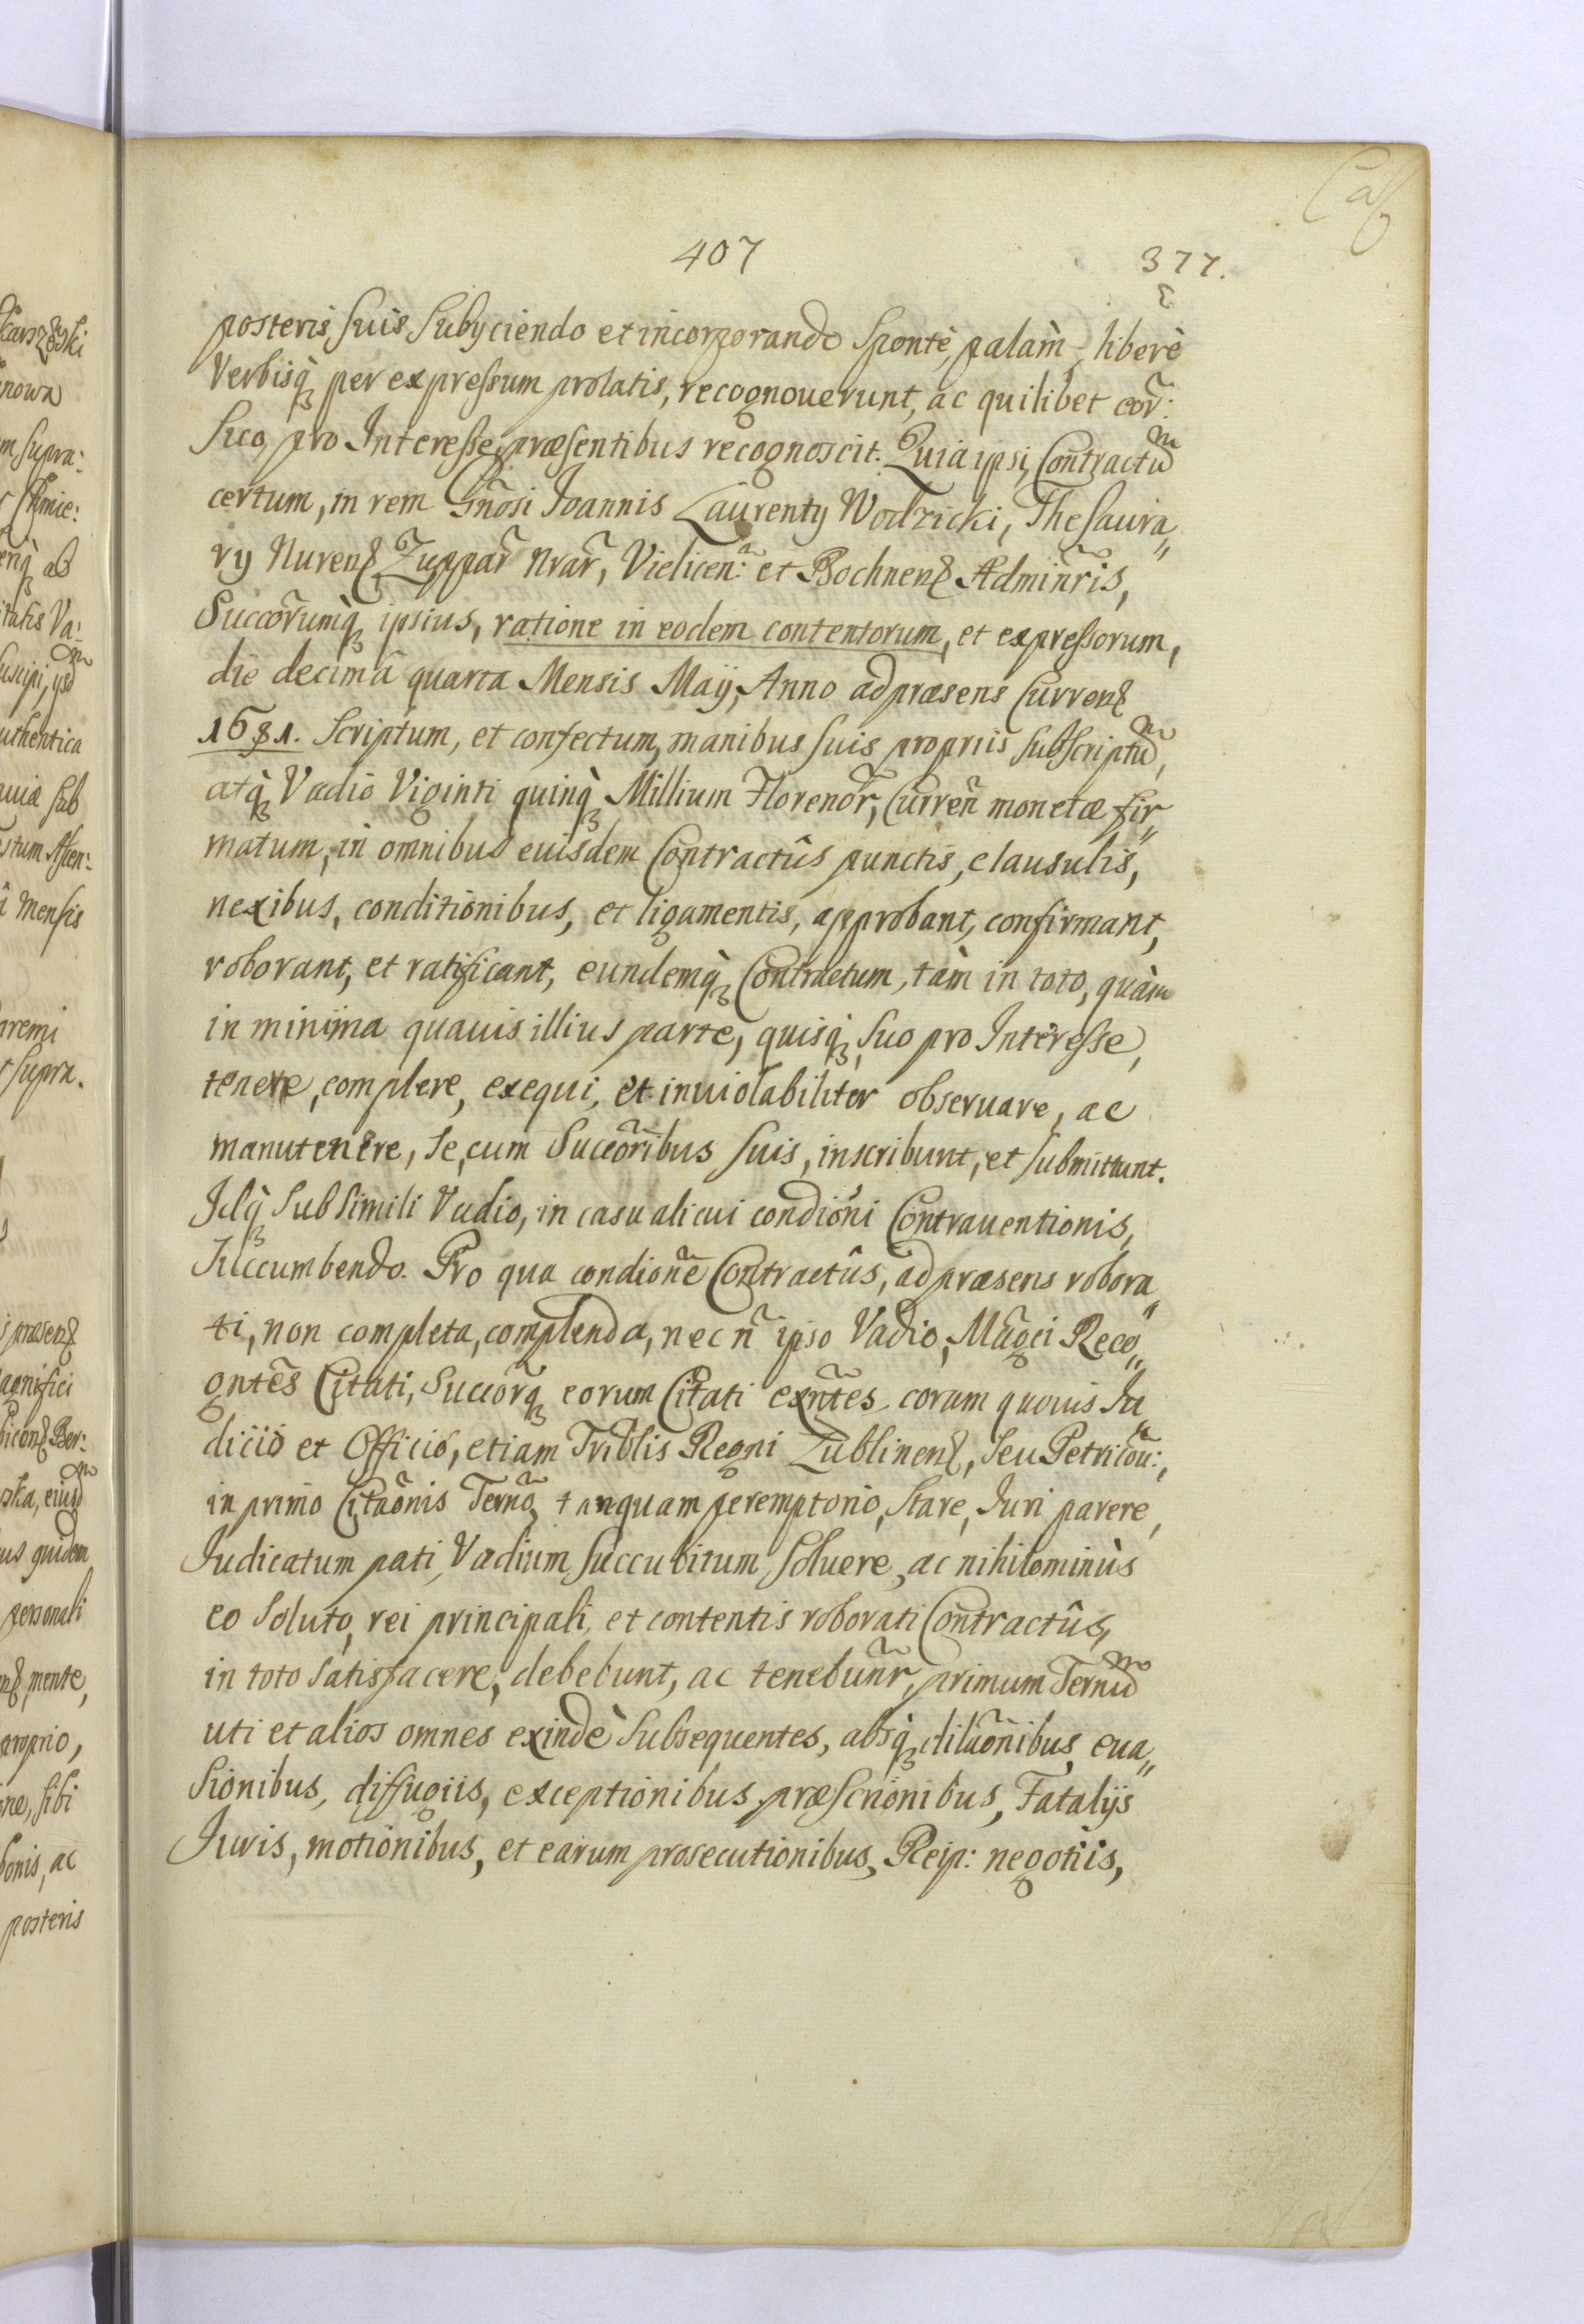 407
377.
posteris suis Subyciendo et incorporando Spontè, palàm, liberè
Verbisq̀ꝫ per expressum prolatis, recognouerunt, ac quilibet eor̃:
Suo, pro Interesse, præsentibus recognoscit. Quia ipsi, Contractũ
certum, in rem Gñosi Joannis Laurenty Wodzicki, Thesaura〃
ry Nurenß Zuppar̃ Nrar̃, Vielicen̄: et Bochnenß Adminr̃is,
Succor̃umq̀ꝫ ipsius, ratione in eodem contentorum, et expressorum,
die decimâ quarta Mensis Maÿ, Anno ad præsens Currenß
1681. Scriptum, et confectum, manibus suis propriis Subscriptũ,
atq̀ꝫ Vadio Viginti quinq̀ꝫ Millium Florenor̃, Curren̄ monetæ fir〃
matum, in omnibus euisdem Contractûs punctis, clausulis,
nexibus, conditionibus, et ligamentis, approbant, confirmant,
roborant, et ratificant, eundemq̀ꝫ Contractum, tàm in toto, quàm
in minima quauis illius parte, quisq̀ꝫ, Suo pro Interesse,
tenere, complere, exequi, et inuiolabiliter obseruare, ac
manutenere, Se, cum Succor̃ibus suis, inscribunt, et submittunt.
Idq̀ꝫ Sub simili Vadio, in casu alicui condiõni Contrauentionis,
Succumbendo. Pro qua condiõne Contractûs, ad præsens robora〃
ti, non completa, complenda, nec ñ ipso Vadio, Mãgci Reco〃
gntẽs Citati, Succorq̃ꝫ eorum Citati exñtes coram quouis Iu〃
dicio et Officio, etiam Triblis Regni Lublinenß, Seu Petricoũ:,
in primo Citaõnis Termõ, tanquam peremptorio, Stare, Juri parere,
Judicatum pati, Vadium Succubitum, Soluere, ac nihilominùs
eo Soluto, rei principali, et contentis roborati Contractûs,
in toto Satisfacere, debebunt, ac tenebun̄r, primum Termũ
uti et alios omnes exindè Subsequentes, absq̀ꝫ dilaõnibus, eua〃
sionibus, diffugiis, exceptionibus, præscrionibus, Fatalÿs
Juris, motionibus, et earum prosecutionibus, Reip: negotiis,